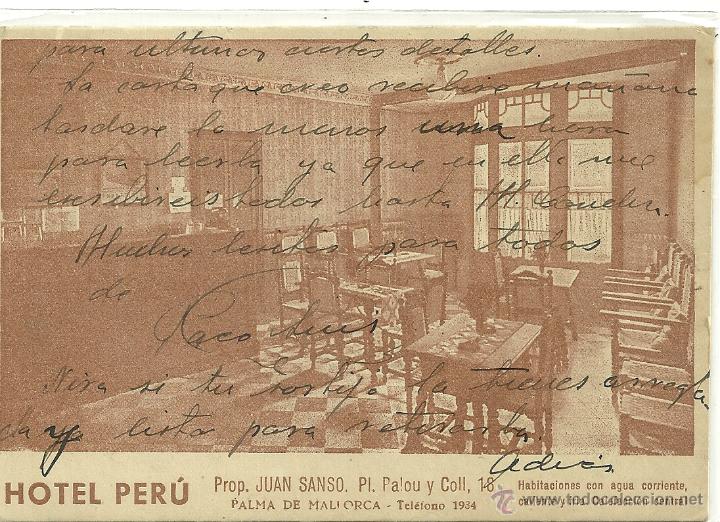 para ultimar ciertos detalles.
La carta que creo recibire mañana
tardare lo menos una hora
para leerla ya que en ella me
escribireis todos hasta M. Carmen.
Muchos besitos para todos
de
Paco Luis
Mira si tu sortija la tienes arregla-
da y lista para retirarla.
adios
HOTEL PERÚ
Prop. JUAN SANSO. Pl. Palou y Coll, 18
PALMA DE MALLORCA - Teléfono 1934
Habitaciones con agua corriente,
caliente y fría. Calefacción central
todocoleccion.net